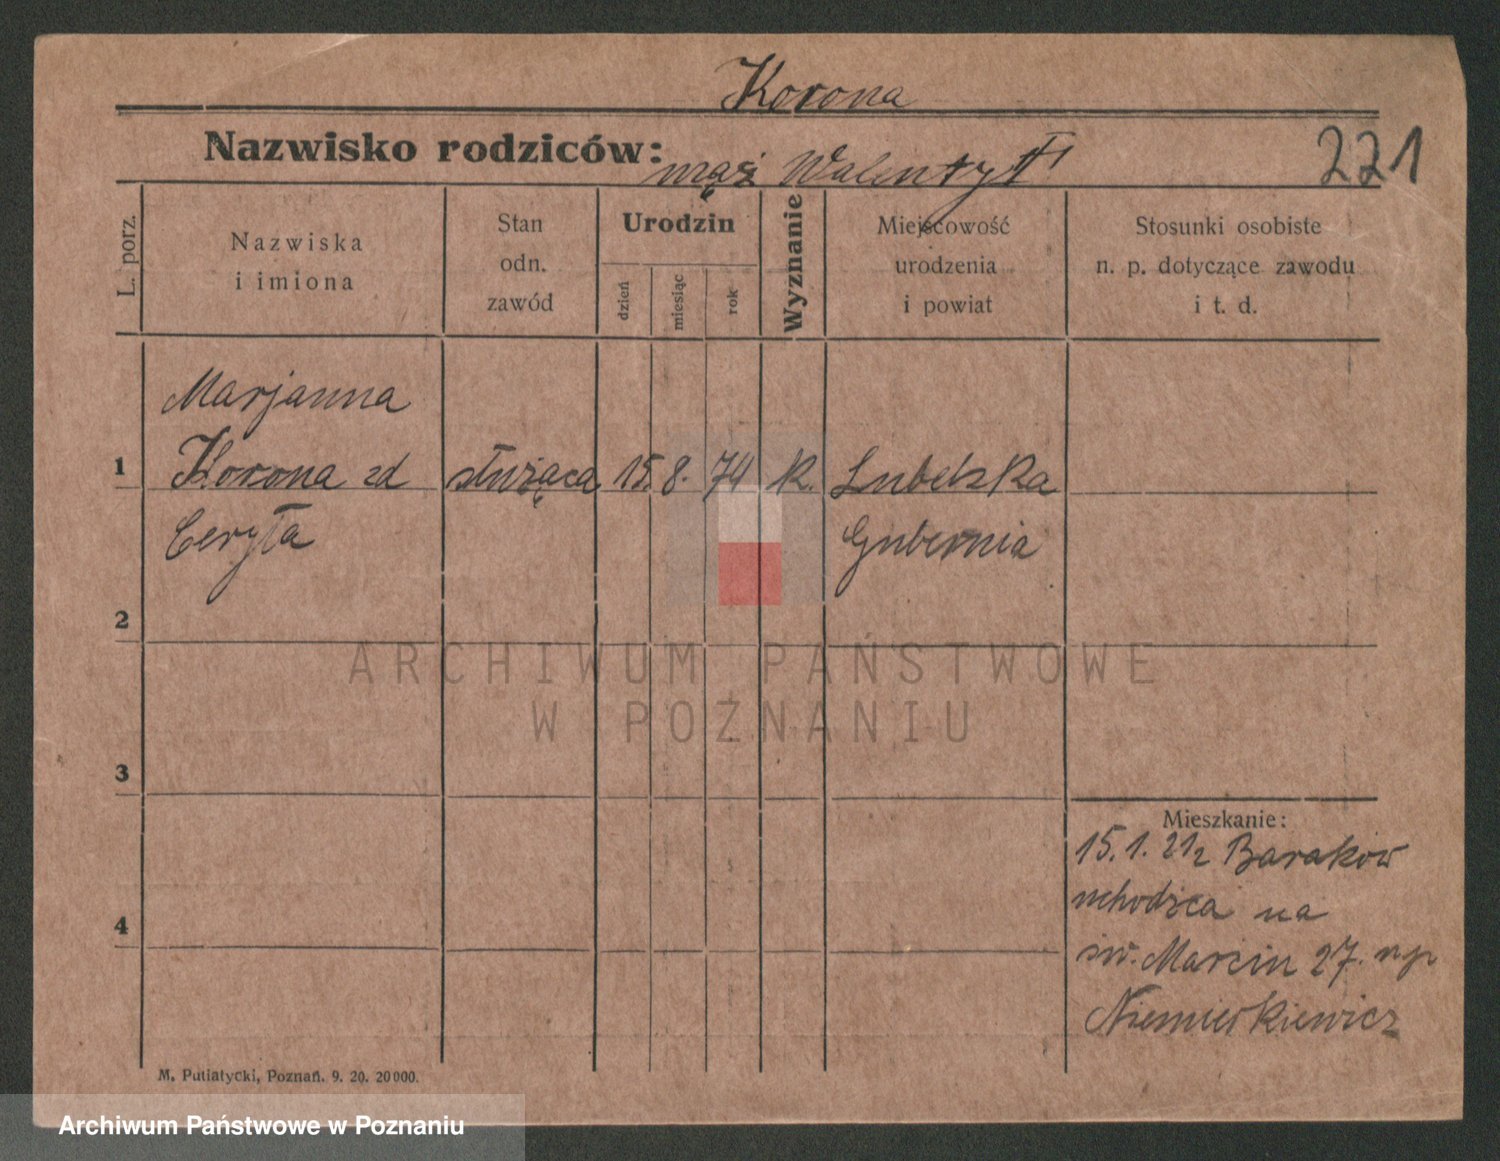 Korona
Nazwisko rodziców: mąż Walenty †
221
L. porz.
Nazwiska
i imiona
Stan
odn.
zawód
Urodzin
dzień
miesiąc
rok
Wyznanie
Miejscowość
urodzenia
i powiat
Stosunki osobiste
n. p. dotyczące zawodu
i t. d.
Marjanna
1 Korona zd służąca 15. 8. 74 K. Lubelska
Ceryła Gubernia
2
3
4
Mieszkanie:
15.1.21 z Baraków
uchodźca na
św. Marcin 27.
Niemierkiewicz
M. Putiatycki, Poznań. 9. 20. 20000.
ARCHIWUM PAŃSTWOWE
W POZNANIU
Archiwum Państwowe w Poznaniu